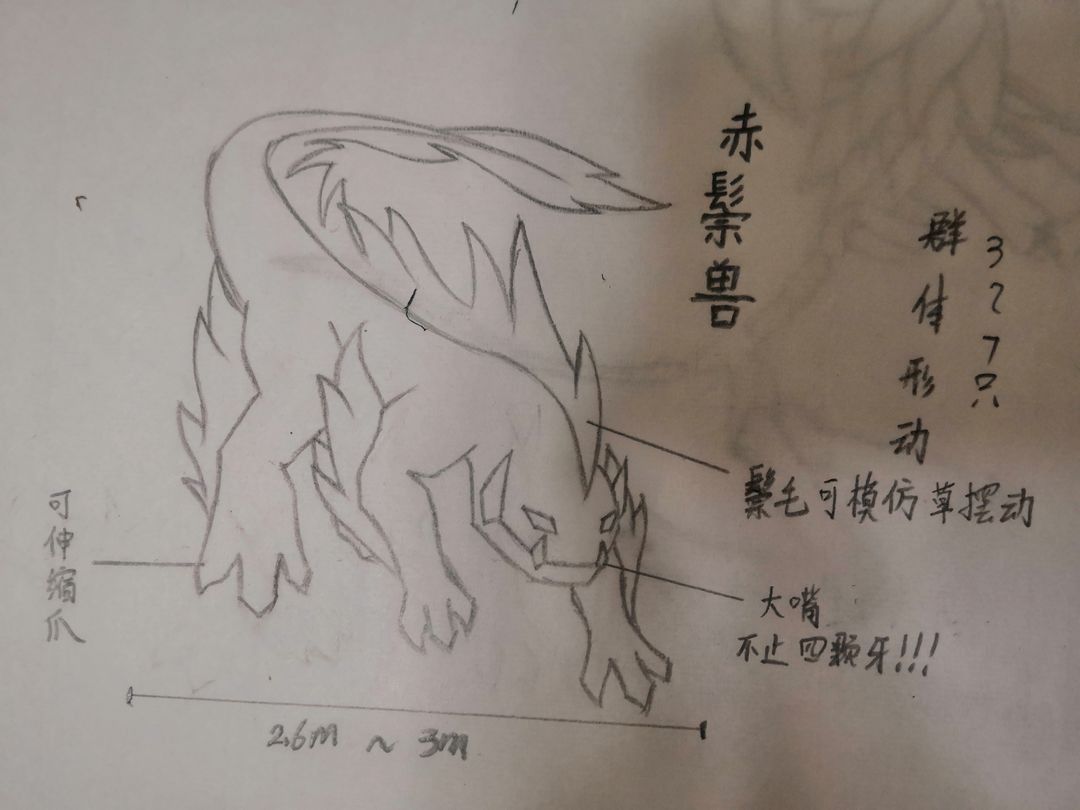 赤鬃兽
群体形动
3~7只
鬃毛可模仿草摆动
大嘴
不止四颗牙!!!
可伸缩爪
2.6m ~ 3m